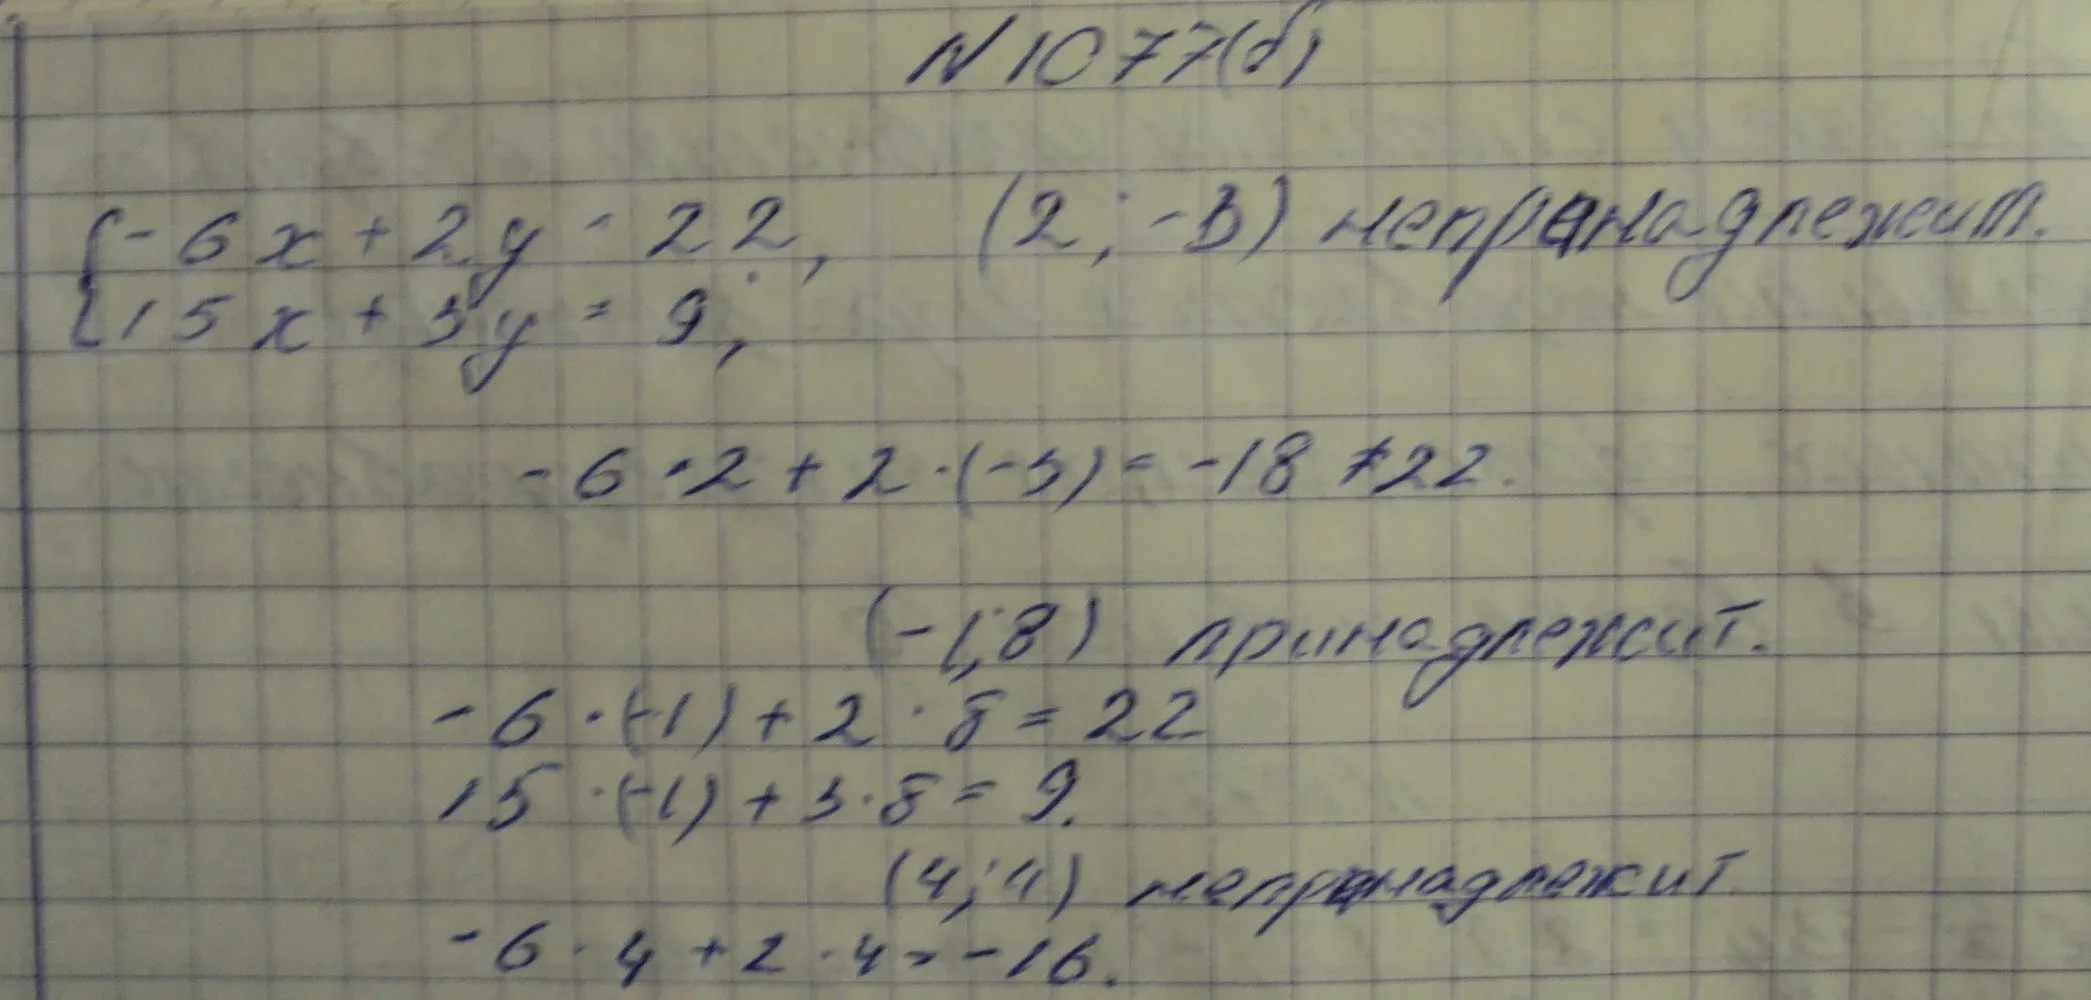 N 1077(б)
{-6x + 2y = 22, (2; -3) непринадлежит.
{15x + 3y = 9,
-6 · 2 + 2 · (-3) = -18 ≠ 22.
(-1; 8) принадлежит.
-6 · (-1) + 2 · 8 = 22
15 · (-1) + 3 · 8 = 9.
(4; 4) непринадлежит
-6 · 4 + 2 · 4 = -16.